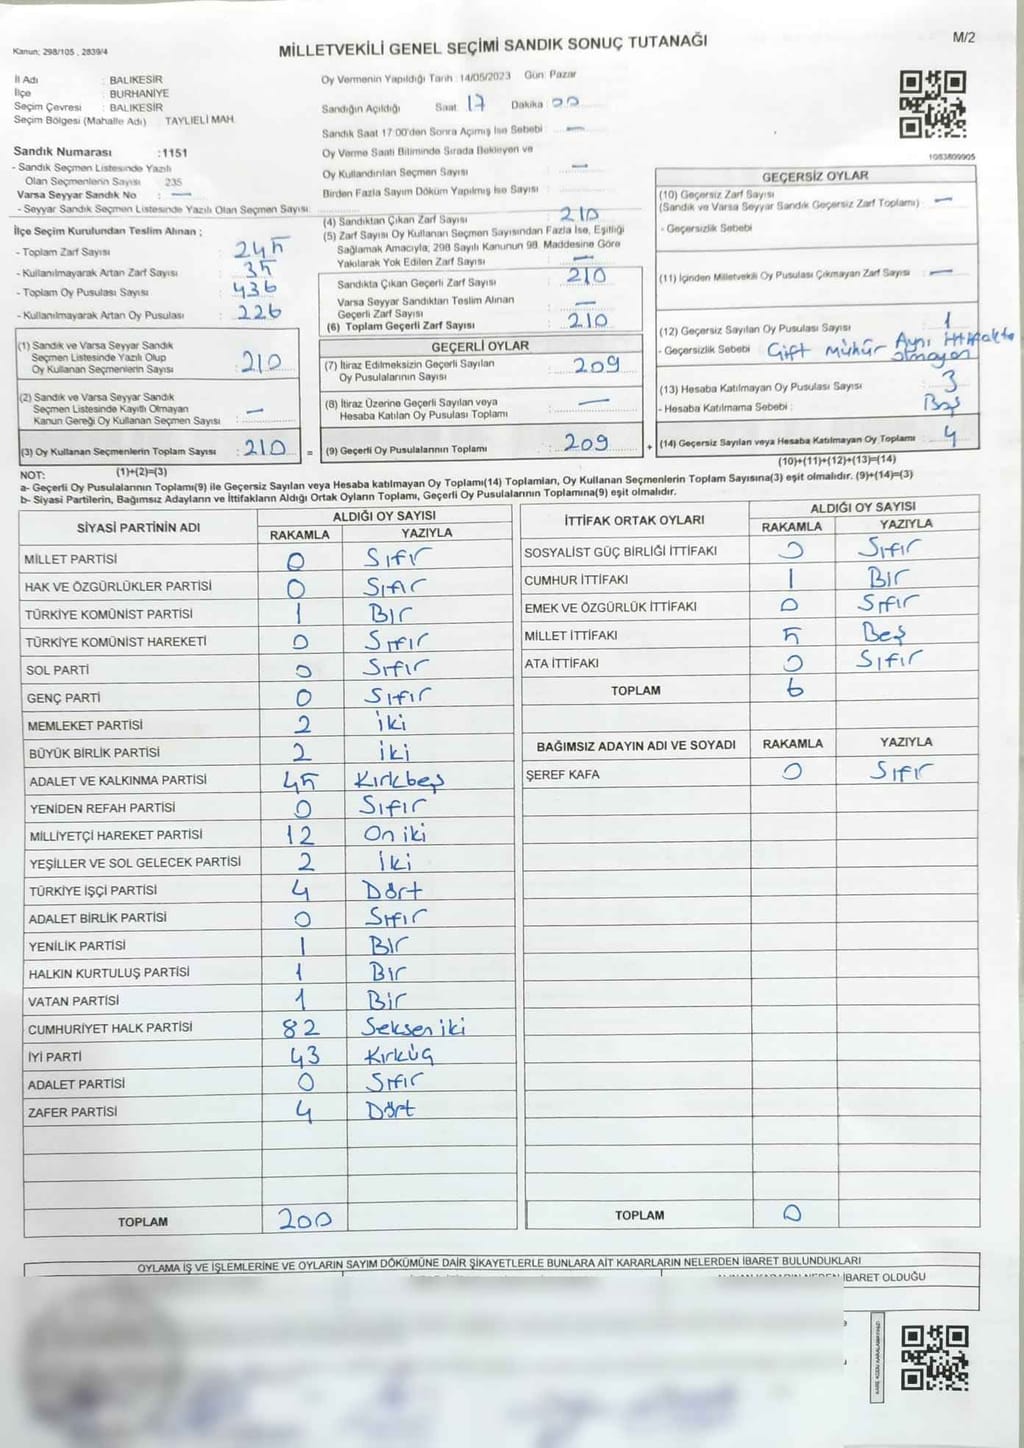 Kanun; 298/105 , 2839/4
MİLLETVEKİLİ GENEL SEÇİMİ SANDIK SONUÇ TUTANAĞI
M/2
İl Adı : BALIKESİR
İlçe : BURHANİYE
Seçim Çevresi : BALIKESİR
Seçim Bölgesi (Mahalle Adı) TAYLIELİ MAH.
Oy Vermenin Yapıldığı Tarih :14/05/2023 Gün: Pazar
Sandığın Açıldığı Saat 17 Dakika 00
Sandık Saat 17:00'den Sonra Açılmış İse Sebebi : —
Oy Verme Saati Bitiminde Sırada Bekleyen ve
Oy Kullandırılan Seçmen Sayısı —
Birden Fazla Sayım Döküm Yapılmış İse Sayısı :
Sandık Numarası :1151
- Sandık Seçmen Listesinde Yazılı
Olan Seçmenlerin Sayısı 235
Varsa Seyyar Sandık No : —
- Seyyar Sandık Seçmen Listesinde Yazılı Olan Seçmen Sayısı:
İlçe Seçim Kurulundan Teslim Alınan ;
- Toplam Zarf Sayısı : 245
- Kullanılmayarak Artan Zarf Sayısı : 35
- Toplam Oy Pusulası Sayısı : 436
- Kullanılmayarak Artan Oy Pusulası : 226
(1) Sandık ve Varsa Seyyar Sandık
Seçmen Listesinde Yazılı Olup
Oy Kullanan Seçmenlerin Sayısı : 210
(2) Sandık ve Varsa Seyyar Sandık
Seçmen Listesinde Kayıtlı Olmayan
Kanun Gereği Oy Kullanan Seçmen Sayısı : —
(3) Oy Kullanan Seçmenlerin Toplam Sayısı : 210 =
(1)+(2)=(3)
(4) Sandıktan Çıkan Zarf Sayısı : 210
(5) Zarf Sayısı Oy Kullanan Seçmen Sayısından Fazla İse, Eşitliği
Sağlamak Amacıyla; 298 Sayılı Kanunun 98. Maddesine Göre
Yakılarak Yok Edilen Zarf Sayısı : —
Sandıkta Çıkan Geçerli Zarf Sayısı : 210
Varsa Seyyar Sandıktan Teslim Alınan
Geçerli Zarf Sayısı : —
(6) Toplam Geçerli Zarf Sayısı : 210
GEÇERLİ OYLAR
(7) İtiraz Edilmeksizin Geçerli Sayılan
Oy Pusulalarının Sayısı : 209
(8) İtiraz Üzerine Geçerli Sayılan veya
Hesaba Katılan Oy Pusulası Toplamı : —
(9) Geçerli Oy Pusulalarının Toplamı : 209 +
1083809905
GEÇERSİZ OYLAR
(10) Geçersiz Zarf Sayısı
(Sandık ve Varsa Seyyar Sandık Geçersiz Zarf Toplamı) : —
- Geçersizlik Sebebi :
(11) İçinden Milletvekili Oy Pusulası Çıkmayan Zarf Sayısı : —
(12) Geçersiz Sayılan Oy Pusulası Sayısı : 1
- Geçersizlik Sebebi : Çift mühür Aynı ittifakta
olmayan
(13) Hesaba Katılmayan Oy Pusulası Sayısı : 3
- Hesaba Katılmama Sebebi : Boş
(14) Geçersiz Sayılan veya Hesaba Katılmayan Oy Toplamı : 4
(10)+(11)+(12)+(13)=(14)
NOT:
a- Geçerli Oy Pusulalarının Toplamı(9) ile Geçersiz Sayılan veya Hesaba katılmayan Oy Toplamı(14) Toplamları, Oy Kullanan Seçmenlerin Toplam Sayısına(3) eşit olmalıdır. (9)+(14)=(3)
b- Siyasi Partilerin, Bağımsız Adayların ve İttifakların Aldığı Ortak Oyların Toplamı, Geçerli Oy Pusulalarının Toplamına(9) eşit olmalıdır.
SİYASİ PARTİNİN ADI ALDIĞI OY SAYISI
RAKAMLA YAZIYLA
MİLLET PARTİSİ 0 Sıfır
HAK VE ÖZGÜRLÜKLER PARTİSİ 0 Sıfır
TÜRKİYE KOMÜNİST PARTİSİ 1 Bir
TÜRKİYE KOMÜNİST HAREKETİ 0 Sıfır
SOL PARTİ 0 Sıfır
GENÇ PARTİ 0 Sıfır
MEMLEKET PARTİSİ 2 iki
BÜYÜK BİRLİK PARTİSİ 2 iki
ADALET VE KALKINMA PARTİSİ 45 Kırkbeş
YENİDEN REFAH PARTİSİ 0 Sıfır
MİLLİYETÇİ HAREKET PARTİSİ 12 On iki
YEŞİLLER VE SOL GELECEK PARTİSİ 2 iki
TÜRKİYE İŞÇİ PARTİSİ 4 Dört
ADALET BİRLİK PARTİSİ 0 Sıfır
YENİLİK PARTİSİ 1 Bir
HALKIN KURTULUŞ PARTİSİ 1 Bir
VATAN PARTİSİ 1 Bir
CUMHURİYET HALK PARTİSİ 82 Seksen iki
İYİ PARTİ 43 Kırküç
ADALET PARTİSİ 0 Sıfır
ZAFER PARTİSİ 4 Dört
TOPLAM 200
İTTİFAK ORTAK OYLARI ALDIĞI OY SAYISI
RAKAMLA YAZIYLA
SOSYALİST GÜÇ BİRLİĞİ İTTİFAKI 0 Sıfır
CUMHUR İTTİFAKI 1 Bir
EMEK VE ÖZGÜRLÜK İTTİFAKI 0 Sıfır
MİLLET İTTİFAKI 5 Beş
ATA İTTİFAKI 0 Sıfır
TOPLAM 6
BAĞIMSIZ ADAYIN ADI VE SOYADI RAKAMLA YAZIYLA
ŞEREF KAFA 0 Sıfır
TOPLAM 0
OYLAMA İŞ VE İŞLEMLERİNE VE OYLARIN SAYIM DÖKÜMÜNE DAİR ŞİKAYETLERLE BUNLARA AİT KARARLARIN NELERDEN İBARET BULUNDUKLARI
İBARET OLDUĞU